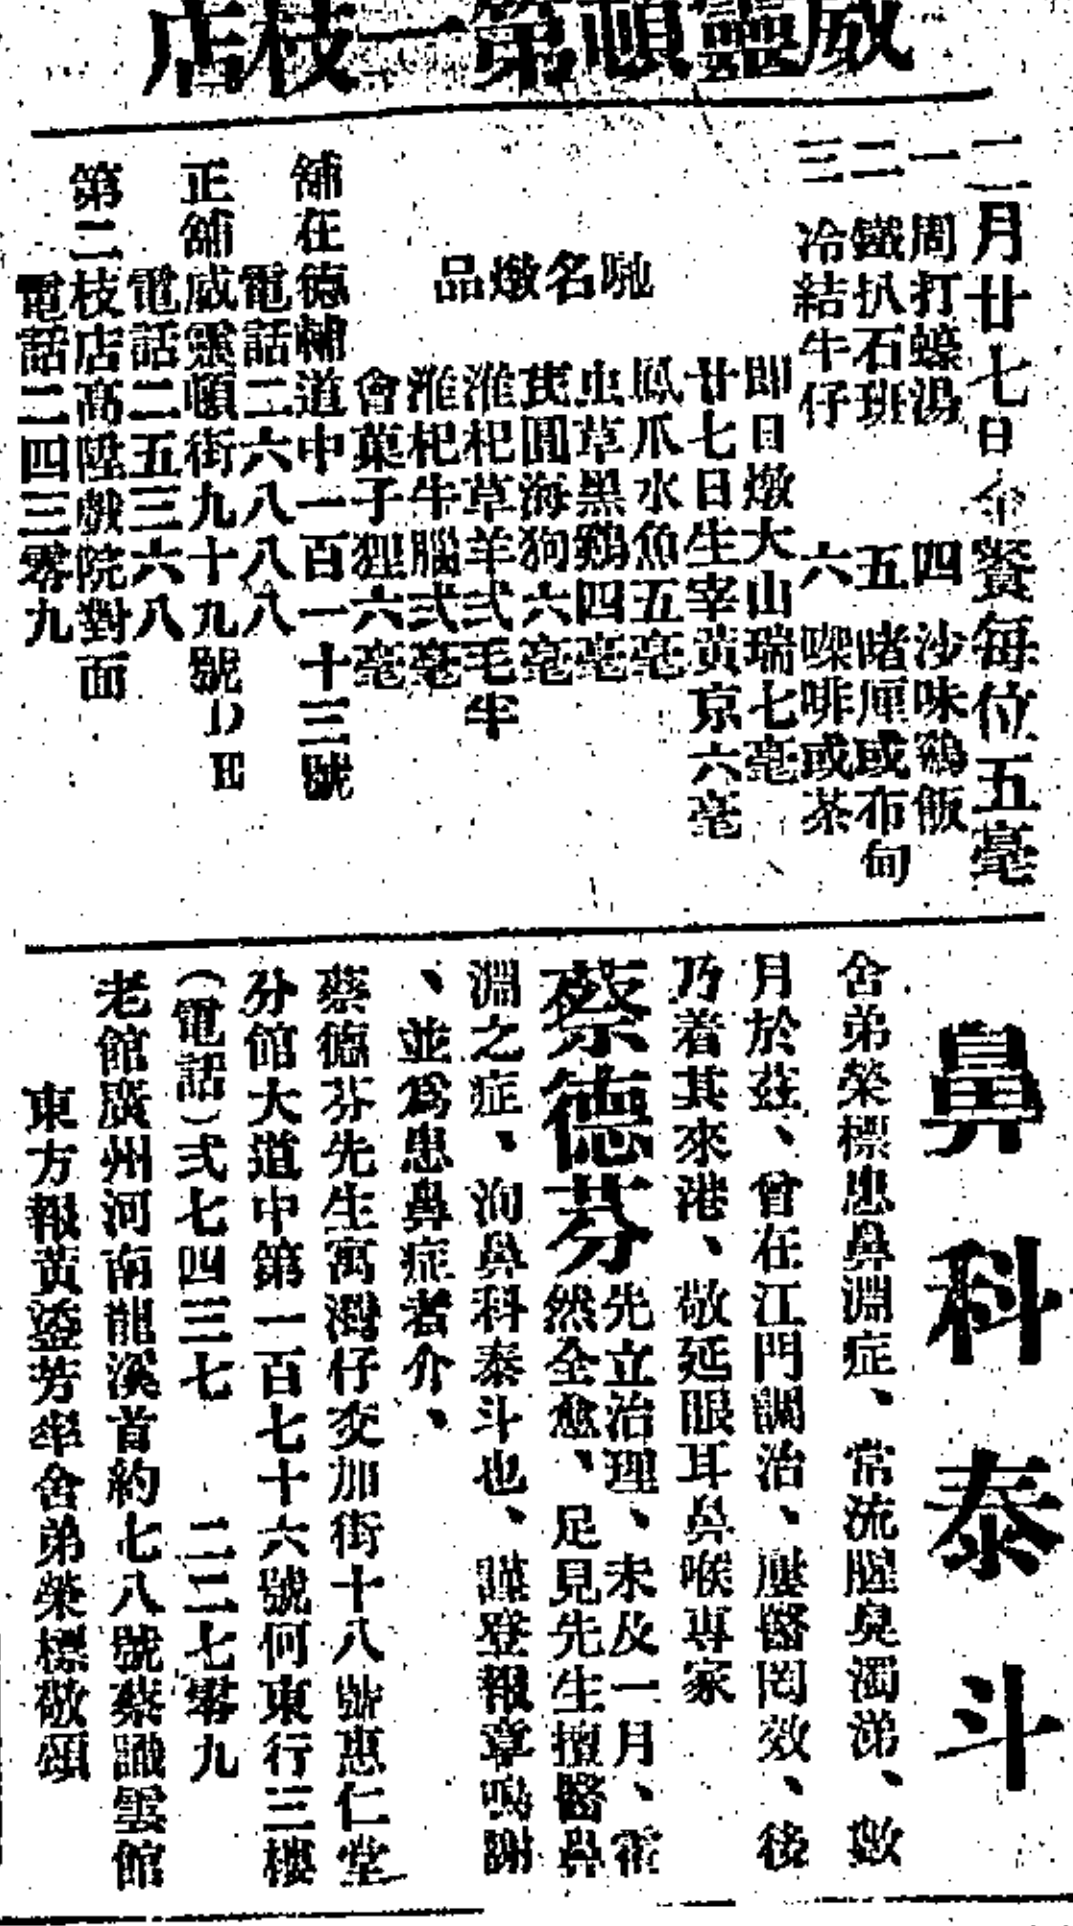 威靈頓第一枝店
二月廿七日全餐每位五毫
一 周打蠔湯 四 沙味鷄飯
二 鐵扒石班 五 啫厘或布甸
三 冷結牛仔 六 㗎啡或茶
即日燉大山瑞七毫
廿七日生宰黃京六毫
馳名燉品
鳳爪水魚五毫
虫草黑鷄四毫
圓海狗六毫
淮杞草羊弍毛半
淮杞牛腦弍毫
會菓子狸六毫
舖在德輔道中一百一十三號
電話二六八八八
正舖威靈頓街九十九號DE
電話二五三六八
第二枝店高陞戲院對面
電話二四三零九
鼻科泰斗
舍弟榮標患鼻淵症、常流腥臭濁涕、數
月於茲、曾在江門調治、屢醫罔效、後
乃着其來港、敬延眼耳鼻喉專家
蔡德芬先立治理、未及一月、霍
然全愈、足見先生擅醫鼻
淵之症、洵鼻科泰斗也、謹登報章鳴謝
、並爲患鼻症者介、
蔡德芬先生寓灣仔交加街十八號惠仁堂
分館大道中第一百七十六號何東行三樓
(電話)弍七四三七 二二七零九
老館廣州河南龍溪首約七八號蔡識雲館
東方報黃鎏芳率舍弟榮標敬頌